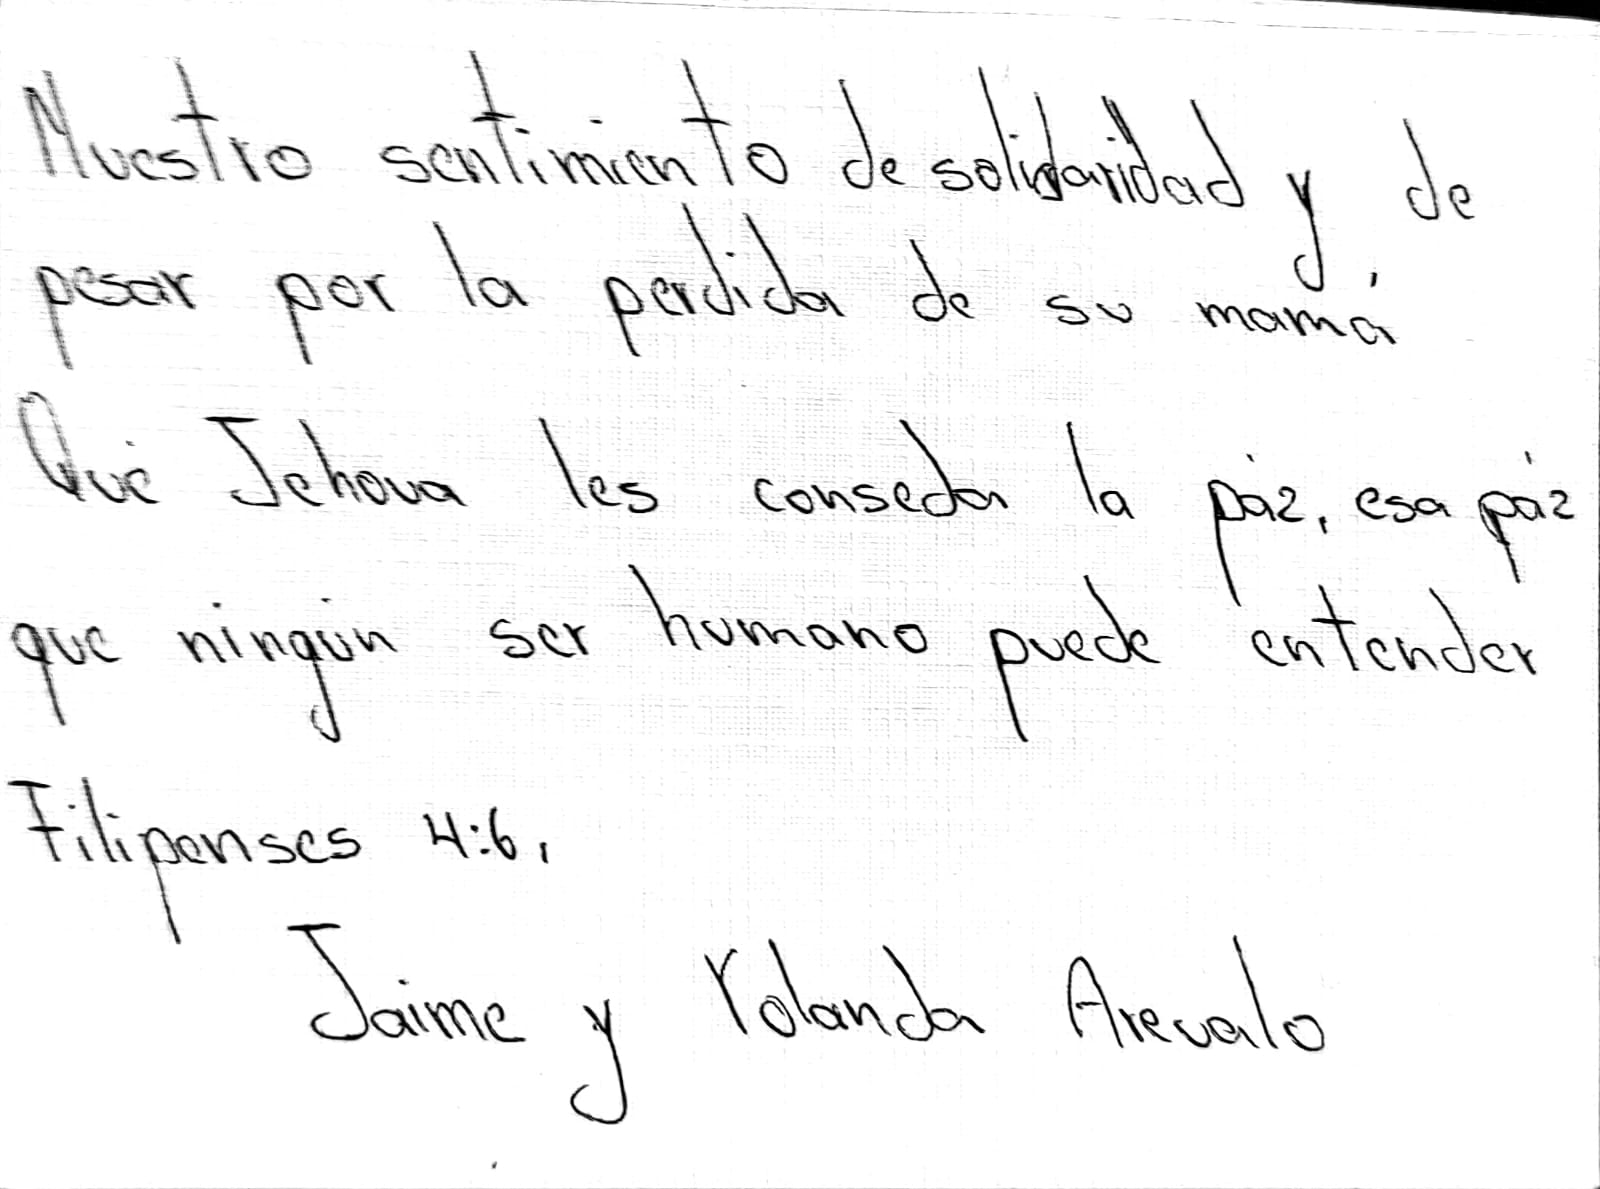 Nuestro sentimiento de solidaridad y de
pesar por la perdida de su mamá
Qué Jehova les conseda la páz, esa páz
que ningún ser humano puede entender
Filipenses 4:6,
Jaime y Yolanda Arevalo